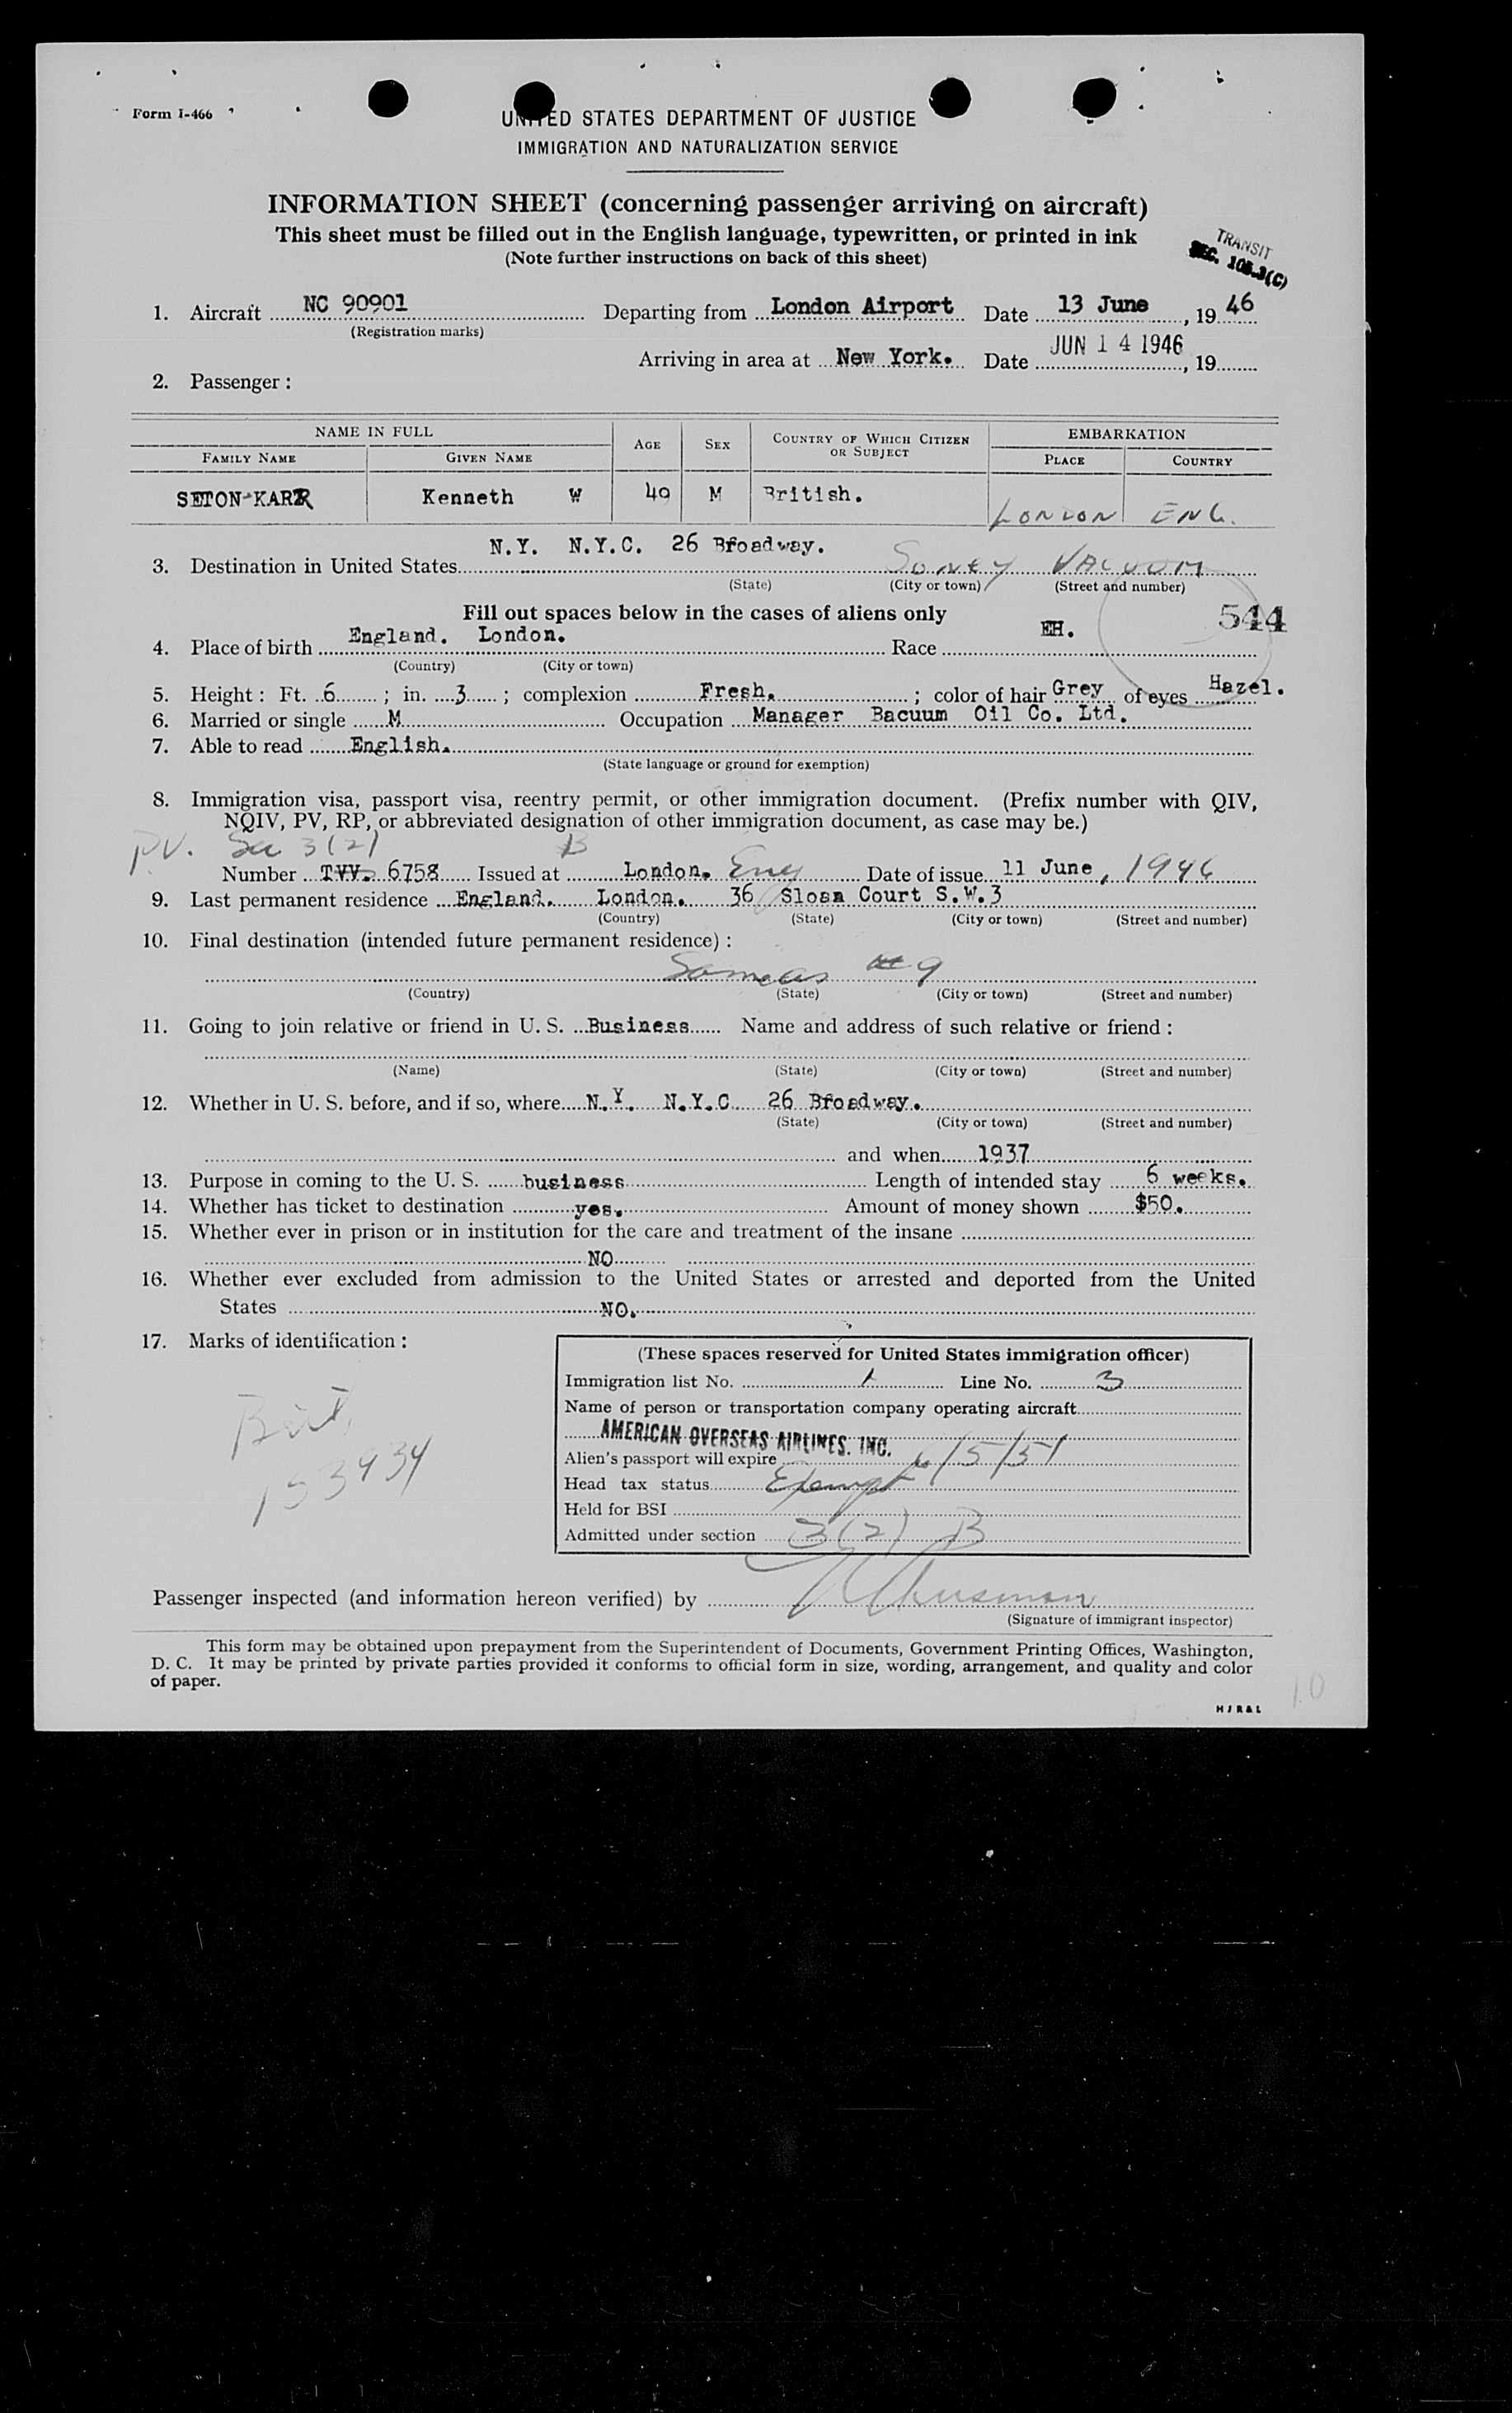 Form I-466
UNITED STATES DEPARTMENT OF JUSTICE
IMMIGRATION AND NATURALIZATION SERVICE
INFORMATION SHEET (concerning passenger arriving on aircraft)
This sheet must be filled out in the English language, typewritten, or printed in ink
(Note further instructions on back of this sheet)
TRANSIT
SEC. 108.3(C)
1. Aircraft NC 90901 Departing from London Airport Date 13 June, 19 46
(Registration marks)
Arriving in area at New York. Date JUN 14 1946, 19
2. Passenger :
NAME IN FULL AGE SEX COUNTRY OF WHICH CITIZEN OR SUBJECT EMBARKATION
FAMILY NAME GIVEN NAME PLACE COUNTRY
SETON-KARR Kenneth W 49 M British. LONDON ENG.
N.Y. N.Y.C. 26 Broadway.
3. Destination in United States VACUUM
(State) (City or town) (Street and number)
Fill out spaces below in the cases of aliens only
544
4. Place of birth England. London. Race EH.
(Country) (City or town)
5. Height : Ft. 6 ; in. 3 ; complexion Fresh. ; color of hair Grey of eyes Hazel.
6. Married or single M Occupation Manager Bacuum Oil Co. Ltd.
7. Able to read English.
(State language or ground for exemption)
8. Immigration visa, passport visa, reentry permit, or other immigration document. (Prefix number with QIV,
NQIV, PV, RP, or abbreviated designation of other immigration document, as case may be.)
PV. Sec 3(2) B
Number 6758 Issued at London. Eng Date of issue 11 June, 1946
9. Last permanent residence England. London. 36 Sloan Court S.W.3
(Country) (State) (City or town) (Street and number)
10. Final destination (intended future permanent residence) :
Same as # 9
(Country) (State) (City or town) (Street and number)
11. Going to join relative or friend in U. S. Business Name and address of such relative or friend :
(Name) (State) (City or town) (Street and number)
12. Whether in U. S. before, and if so, where N.Y. N.Y.C 26 Broadway.
(State) (City or town) (Street and number)
and when 1937
13. Purpose in coming to the U. S. business Length of intended stay 6 weeks.
14. Whether has ticket to destination yes. Amount of money shown $50.
15. Whether ever in prison or in institution for the care and treatment of the insane
NO
16. Whether ever excluded from admission to the United States or arrested and deported from the United
States NO.
17. Marks of identification :
Brit.
153934
(These spaces reserved for United States immigration officer)
Immigration list No. 1 Line No. 3
Name of person or transportation company operating aircraft
AMERICAN OVERSEAS AIRLINES. INC.
Alien's passport will expire 6/5/51
Head tax status Exempt
Held for BSI
Admitted under section 3(2) B
Passenger inspected (and information hereon verified) by
(Signature of immigrant inspector)
This form may be obtained upon prepayment from the Superintendent of Documents, Government Printing Offices, Washington,
D. C. It may be printed by private parties provided it conforms to official form in size, wording, arrangement, and quality and color
of paper.
H J R & L
10